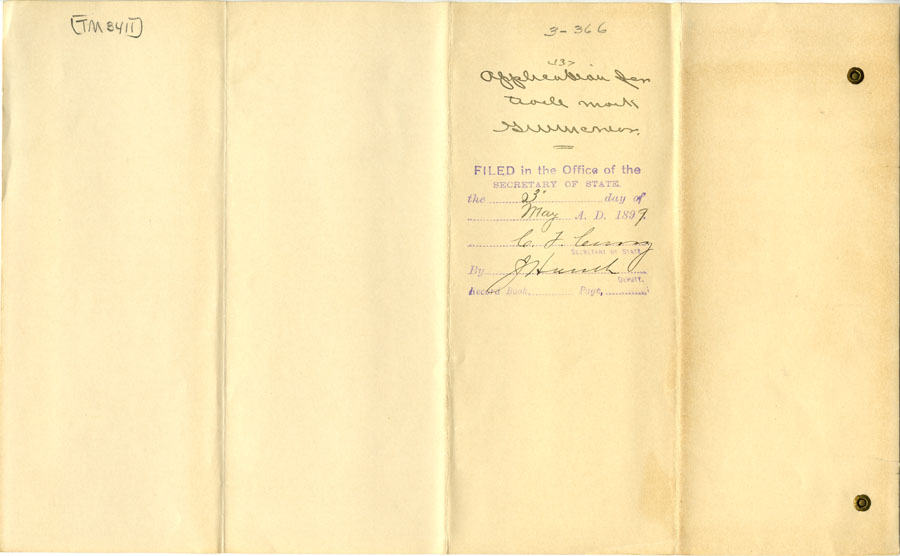 [TM3411]
3-366
<3>
Application for
trade mark
FILED in the Office of the
SECRETARY OF STATE.
the 3" day of
May A. D. 1897.
C. F. Curry
SECRETARY OF STATE
By J Hoesch
DEPUTY.
Record Book, Page,